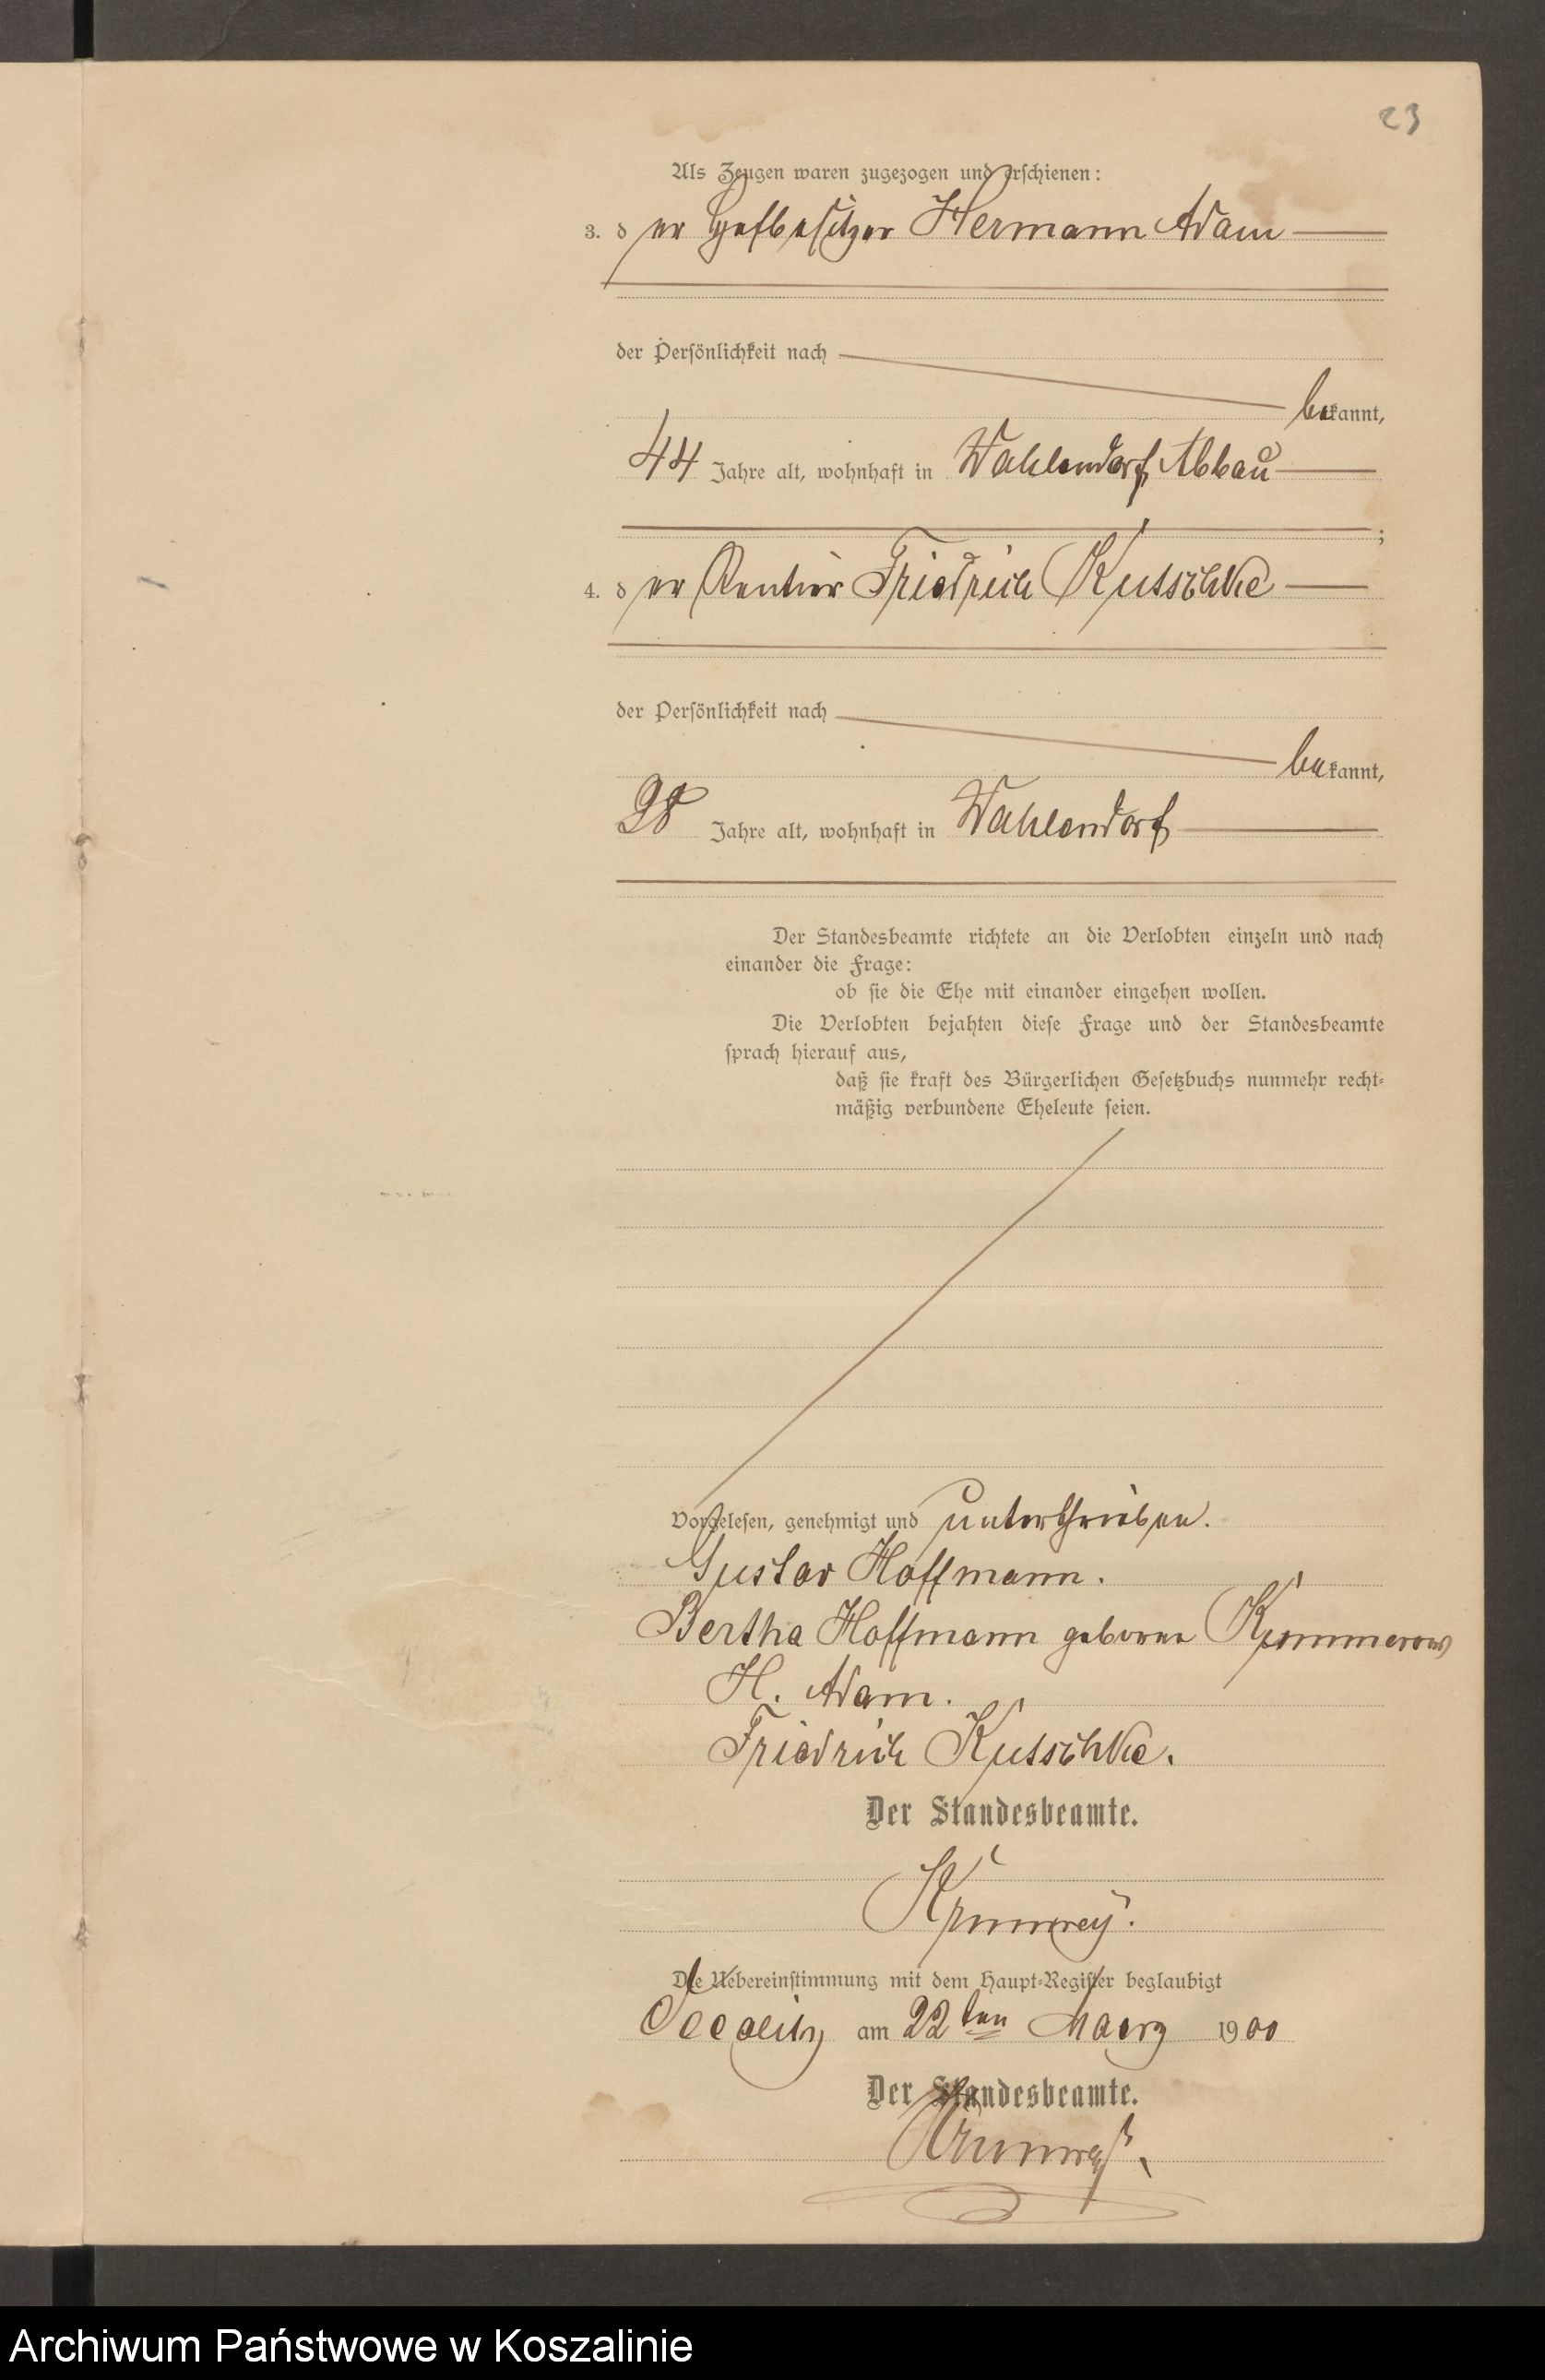 23
Als Zeugen waren zugezogen und erschienen:
3. der Hofbesitzer Hermann Adam
der Persönlichkeit nach
bekannt,
44 Jahre alt, wohnhaft in Wahlendorf Abbau
;
4. der Rentier Friedrich Kutschke
der Persönlichkeit nach
bekannt,
38 Jahre alt, wohnhaft in Wahlendorf
Der Standesbeamte richtete an die Verlobten einzeln und nach
einander die Frage:
ob sie die Ehe mit einander eingehen wollen.
Die Verlobten bejahten diese Frage und der Standesbeamte
sprach hierauf aus,
daß sie kraft des Bürgerlichen Gesetzbuchs nunmehr recht-
mäßig verbundene Eheleute seien.
Vorgelesen, genehmigt und unterschrieben.
Gustav Hoffmann.
Bertha Hoffmann geborne Kummerow
H. Adam.
Friedrich Kutschke.
Der Standesbeamte.
Die Uebereinstimmung mit dem Haupt-Register beglaubigt
am 22ten Maerz 1900
Der Standesbeamte.
Archiwum Państwowe w Koszalinie